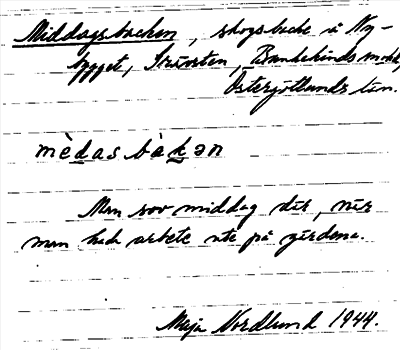 Middagsbacken, skogsbacke å Ny-
bygget, Skärsten, Bankekinds
Östergötlands län.
mèdasbàkən
Man sov middag där, när
man hade arbete ute på gärdena.
Maja Nordlund 1944.